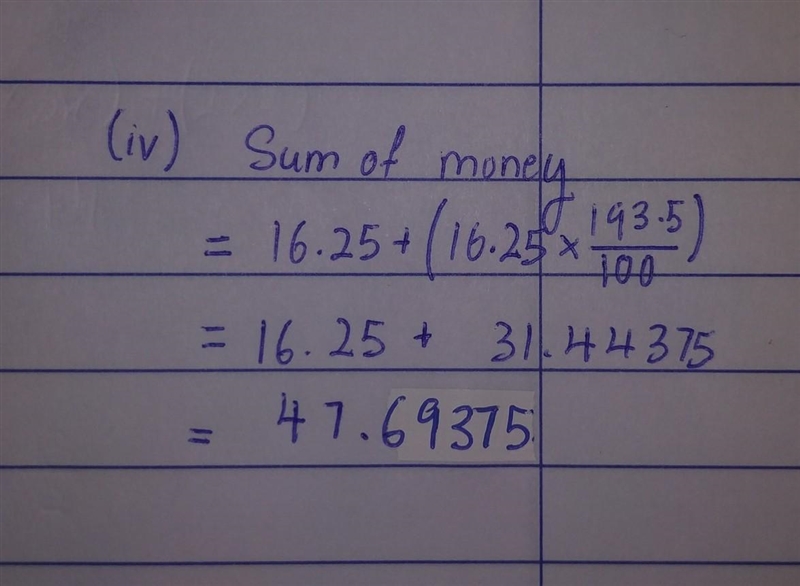 (iv) Sum of money
= 16.25 + (16.25 × 193.5/100)
= 16.25 + 31.44375
= 47.69375